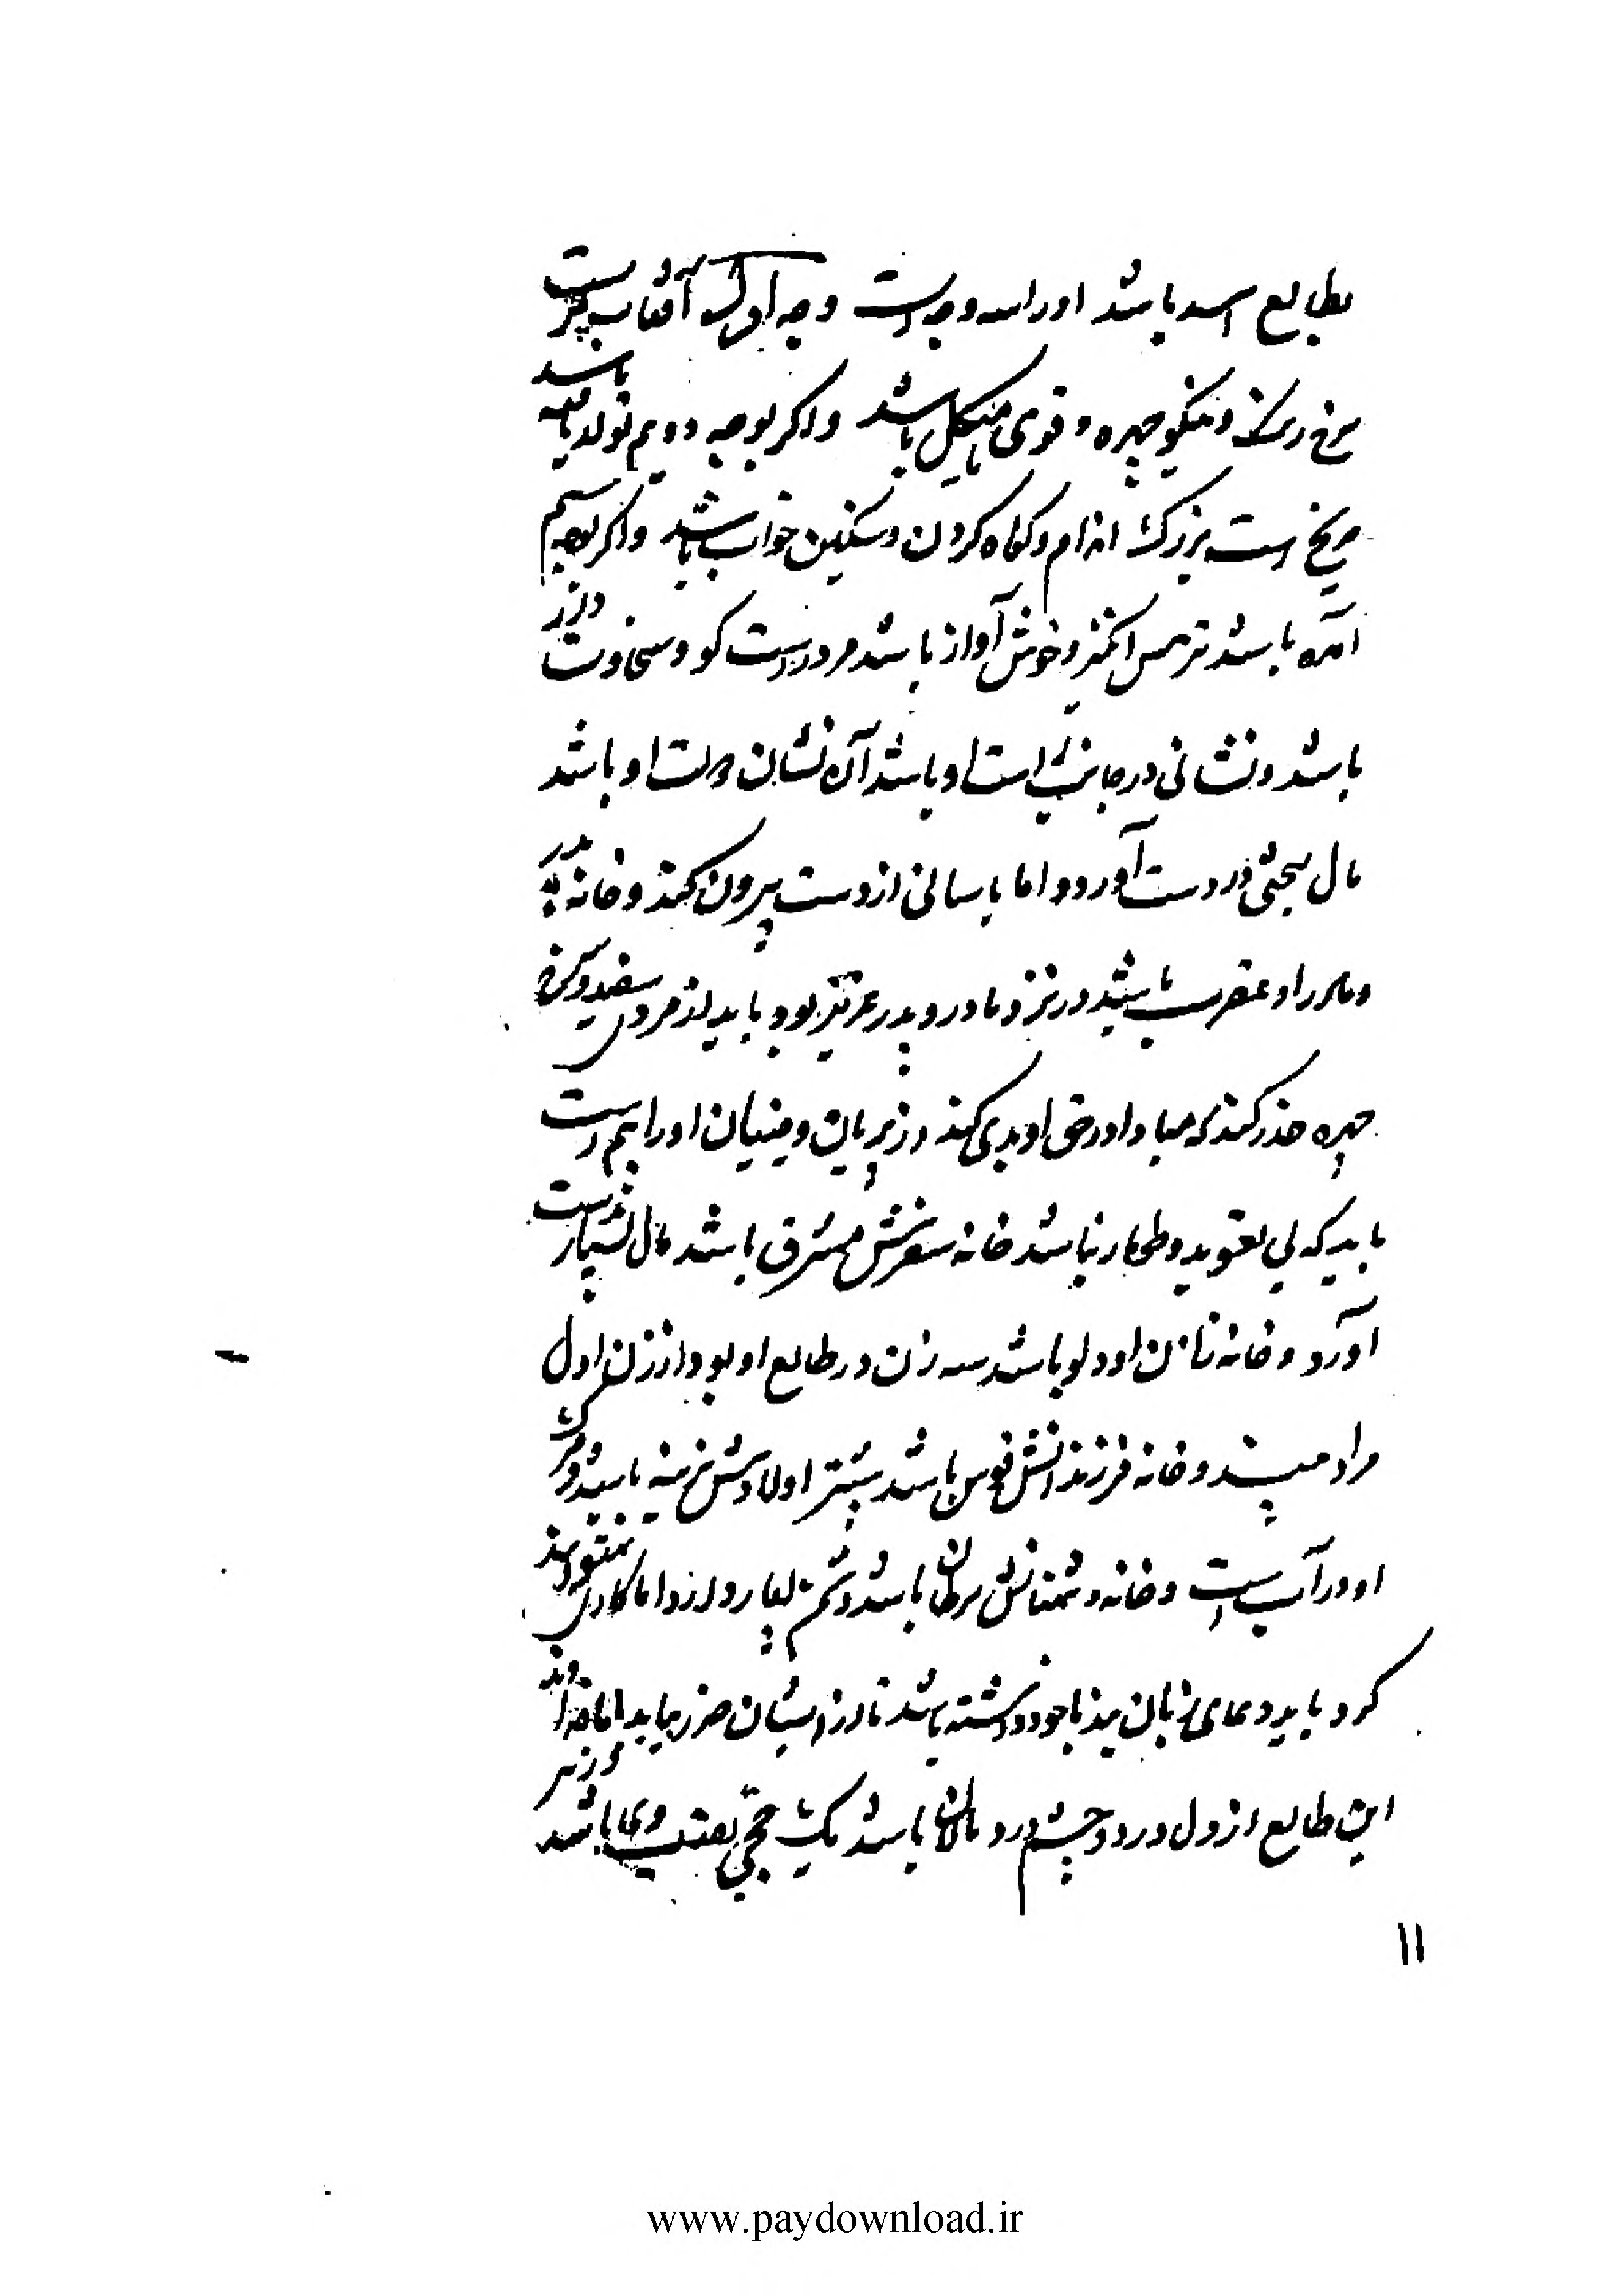 بطالع اسد باشد او را سه وجه است وجه اول آفتاب است
سرخ رنگ و نیکو چهره و قوی هیکل باشد و اگر بوجه دویم تولد یافته باشد
مریخ است بزرگ اندام و کوتاه گردن و سنگین خواب باشد و اگر بوجه سیم
آمده باشد ترحم انگیز و خوش آواز باشد مرد راست گو و سخاوت
باشد و نشانی در جانب راست او باشد آن نشان دولت او باشد
مال بسختی در دست آورد و اما باسانی از دست بیرون کند و خانه پدر
و مادر او عقرب باشد در نزد مادر و پدر عزیز بود باید از مردی سفید و سرخ
چهره حذر کند که مبادا در حق او بدی کند و زیر بان و جنیان او را هم است
باید که بی تعویذ و طومار نباشد خانه سفرش مشرق باشد مال بسیار بدست
آورد و خانه زنان او دلو باشد سه زن در طالع او بود از زن اول
مراد بیند و خانه فرزندانش قوس باشد بیشتر اولادش نرینه باشد و مرگ
او در آب است و خانه دشمنانش سرطان باشد دشمن بسیار دارد اما کاری نتوانند
کرد باید دعای زبان بند با خود داشته باشد تا از ایشان ضرر نیابد اما خداوند
این طالع از دل درد و چشم درد نالان باشد یک حجی بعقب وی باشد
۱۱
www.paydownload.ir